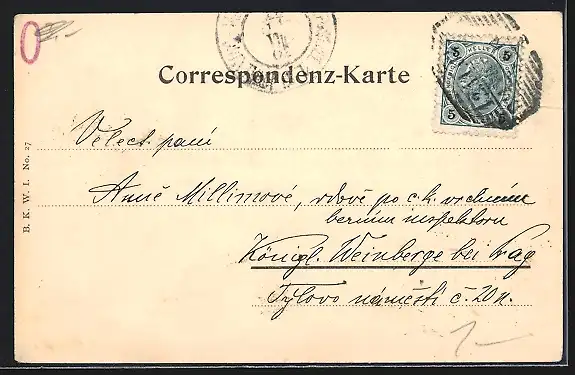 Correspondenz-Karte
5 HELLER 5
5 5
B. K. W. I. No. 27
Velect. paní
Anně Millimové, vdově po c.k. vrchním
berním inspektoru
Königl. Weinberge bei Prag
Tylovo náměstí č. 20 n.